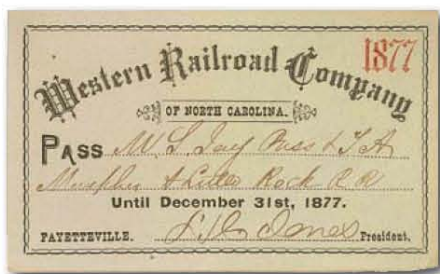 1877
Western Railroad Company
OF NORTH CAROLINA.
PASS M. L. Jay Pass & T A
Memphis & Little Rock R R
Until December 31st, 1877.
FAYETTEVILLE. Jones President.